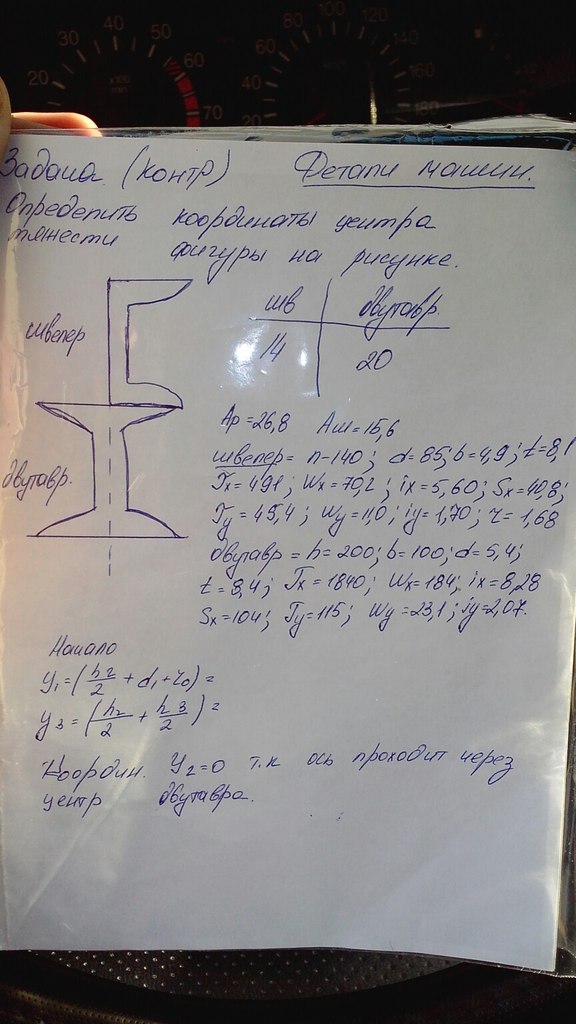 20 30 40 50 60 70
20 40 60 80 100 120 140 160 180
Задача (контр) Детали машин.
Определить координаты центра
тяжести фигуры на рисунке.
шв двутавр.
14 20
швелер
двутавр.
Aр=26,8 Aш=15,6
швелер= h-140; d=85; b=4,9; t=8,1
Jx=491; Wx=70,2; ix=5,60; Sx=40,8;
Jy=45,4; Wy=11,0; iy=1,70; z=1,68
двутавр=h=200; b=100; d=5,4;
t=8,4; Jx=1840; Wx=184; ix=8,28
Sx=104; Jy=115; Wy=23,1; iy=2,07.
Начало
y1=(h2/2+d1+z0)=
y3=(h2/2+h3/2)=
Координ. y2=0 т.к ось проходит через
центр двутавра.